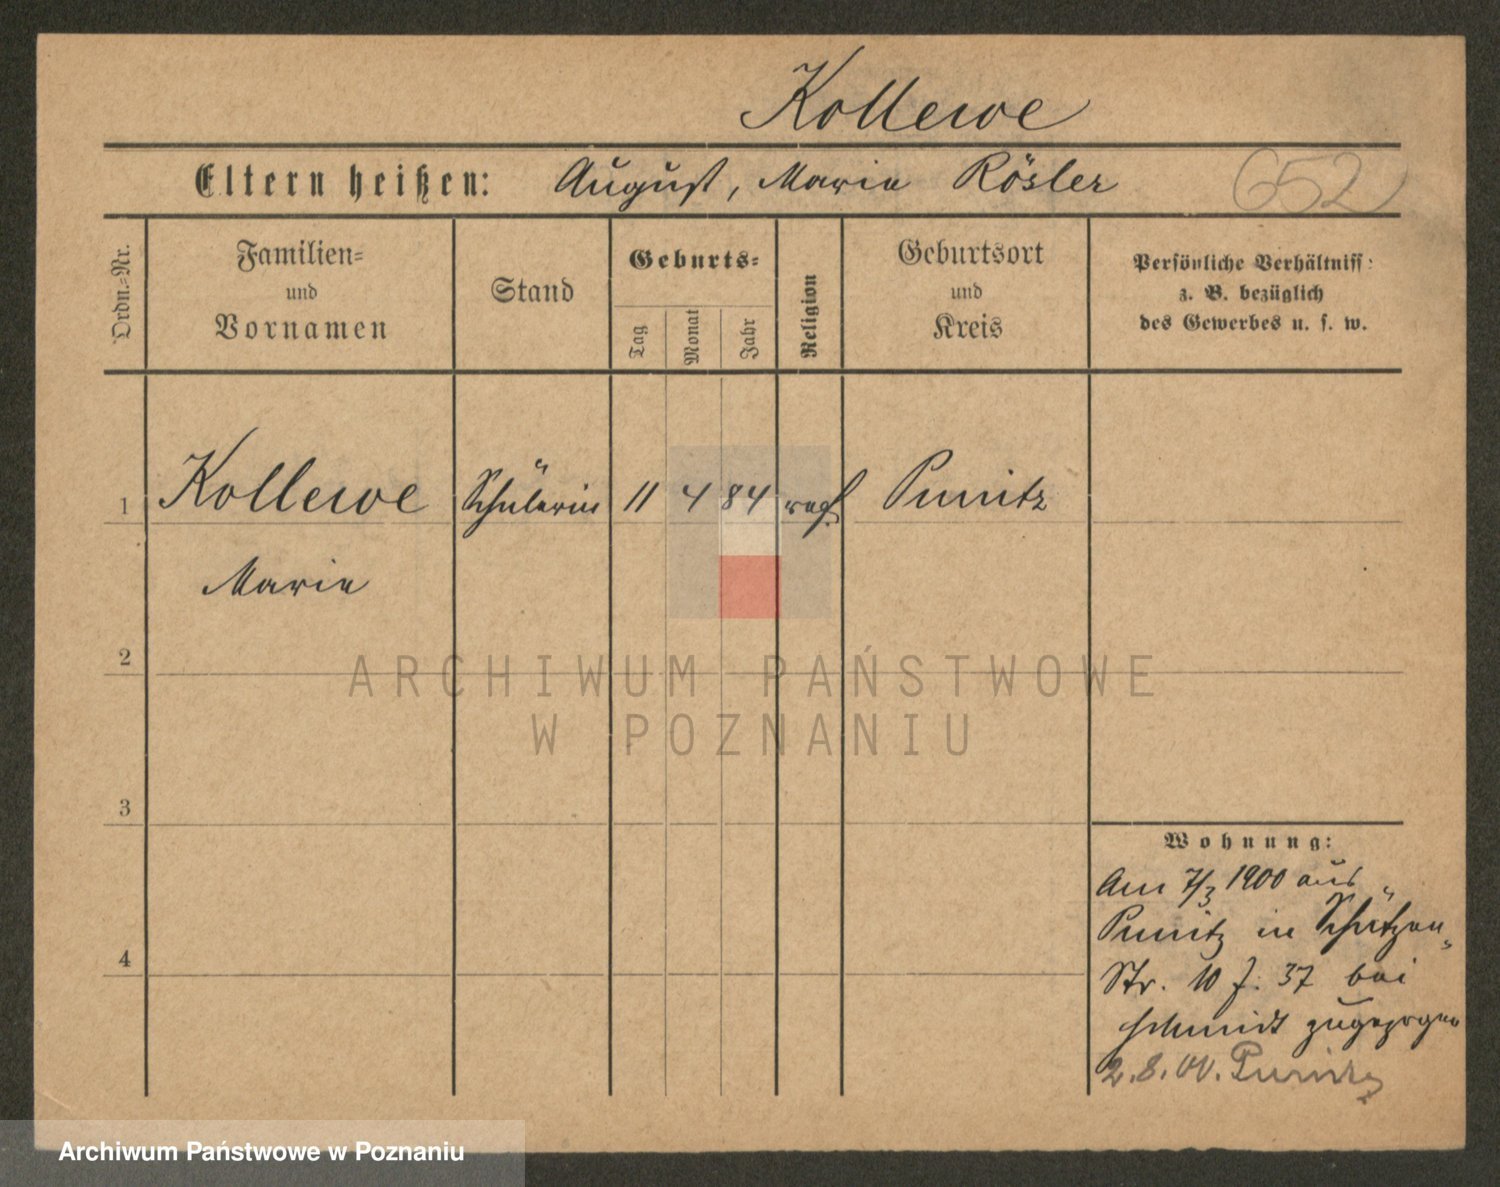 Kollewe
Eltern heißen: August, Marie Rösler
652
Ordn.-Nr.
Familien-
und
Vornamen
Stand
Geburts-
Tag
Monat
Jahr
Religion
Geburtsort
und
Kreis
Persönliche Verhältniss:
z. B. bezüglich
des Gewerbes u. s. w.
1 Kollewe Schülerin 11 4 84 Punitz
Marie
2
ARCHIWUM PAŃSTWOWE
W POZNANIU
3
4
Wohnung:
Am 7/3 1900 aus
Punitz in Schützen„
Str. 10 37 bei
Schmidt zugezogen
2.8.00. Punitz
Archiwum Państwowe w Poznaniu